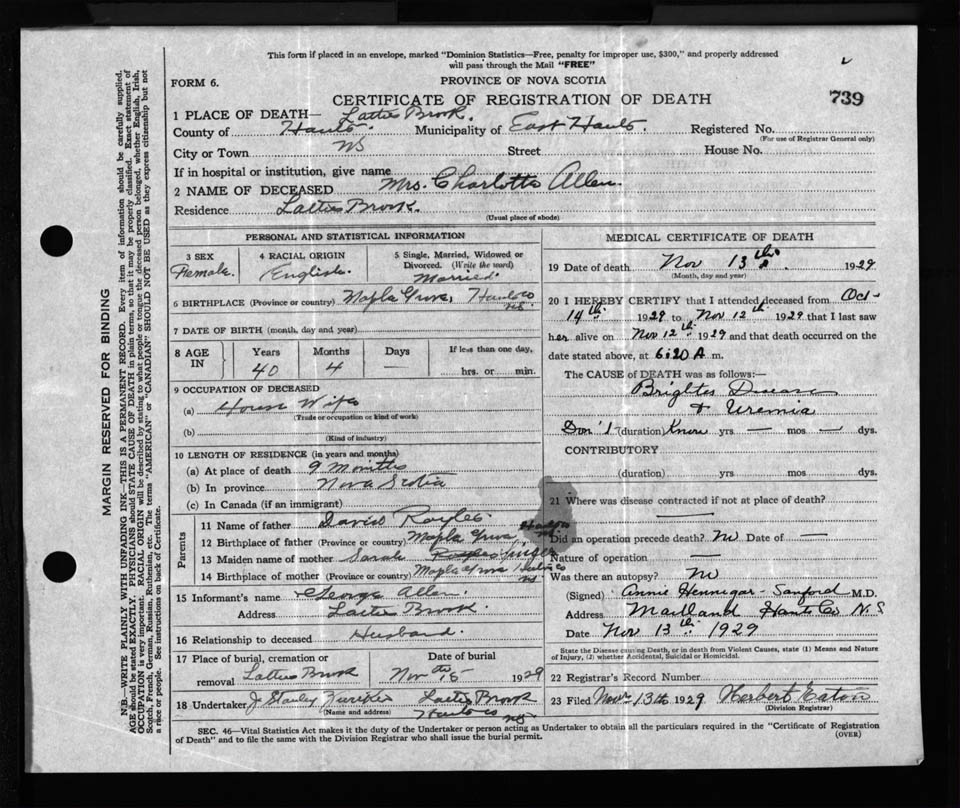 This form if placed in an envelope, marked "Dominion Statistics—Free, penalty for improper use, $300," and properly addressed
will pass through the Mail "FREE"
FORM 6.
PROVINCE OF NOVA SCOTIA
CERTIFICATE OF REGISTRATION OF DEATH
739
1 PLACE OF DEATH— Latties Brook.
County of Hants. Municipality of East Hants. Registered No.
(For use of Registrar General only)
City or Town NS Street House No.
If in hospital or institution, give name
2 NAME OF DECEASED Mrs. Charlotte Allen.
Residence Latties Brook.
(Usual place of abode)
PERSONAL AND STATISTICAL INFORMATION
3 SEX Female.
4 RACIAL ORIGIN English.
5 Single, Married, Widowed or Divorced. (Write the word) Married.
6 BIRTHPLACE (Province or country) Maple Grove, Hants Co NS.
7 DATE OF BIRTH (month, day and year)
8 AGE IN Years Months Days If less than one day,
40 4 — hrs. or min.
9 OCCUPATION OF DECEASED
(a) House Wife
(Trade or occupation or kind of work)
(b)
(Kind of industry)
10 LENGTH OF RESIDENCE (in years and months)
(a) At place of death 9 months
(b) In province Nova Scotia
(c) In Canada (if an immigrant)
Parents
11 Name of father David
12 Birthplace of father (Province or country) Maple Grove,
13 Maiden name of mother Sarah
14 Birthplace of mother (Province or country) Maple Grove Hants Co NS
15 Informant's name George Allen.
Address Latties Brook.
16 Relationship to deceased Husband.
17 Place of burial, cremation or removal Latties Brook
Date of burial Nov 15 1929
18 Undertaker J Stanley Latties Brook
(Name and address) Hants Co NS
MEDICAL CERTIFICATE OF DEATH
19 Date of death Nov 13th. 1929
(Month, day and year)
20 I HEREBY CERTIFY that I attended deceased from Oct
14th 1929 to Nov 12th 1929 that I last saw
her alive on Nov 12th 1929 and that death occurred on the
date stated above, at 6:20 A m.
The CAUSE of DEATH was as follows:
Brights Disease
& Uremia
Don't (duration) Know yrs — mos — dys.
CONTRIBUTORY
(duration) yrs mos dys.
21 Where was disease contracted if not at place of death?
—
Did an operation precede death? No Date of —
Nature of operation —
Was there an autopsy? No
(Signed) Annie Hennigar-Sanford M.D.
Address Maitland Hants Co N.S
Date Nov 13th. 1929
State the Disease causing Death, or in death from Violent Causes, state (1) Means and Nature
of Injury, (2) whether Accidental, Suicidal or Homicidal.
22 Registrar's Record Number
23 Filed Nov 13th 1929 Herbert Eaton
(Division Registrar)
SEC. 46—Vital Statistics Act makes it the duty of the Undertaker or person acting as Undertaker to obtain all the particulars required in the "Certificate of Registration
of Death" and to file the same with the Division Registrar who shall issue the burial permit.
(OVER)
MARGIN RESERVED FOR BINDING
N.B.—WRITE PLAINLY WITH UNFADING INK—THIS IS A PERMANENT RECORD. Every item of information should be carefully supplied.
AGE should be stated EXACTLY. PHYSICIANS should STATE CAUSE OF DEATH in plain terms, so that it may be properly classified. Exact statement of
OCCUPATION is very important. RACIAL ORIGIN will be described by stating to what people or tongue the deceased person belonged, whether English, Irish,
Scotch, French, German, Russian, Ruthenian, etc. The terms "AMERICAN" or "CANADIAN" SHOULD NOT BE USED as they express citizenship but not
a race or people. See instructions on back of Certificate.